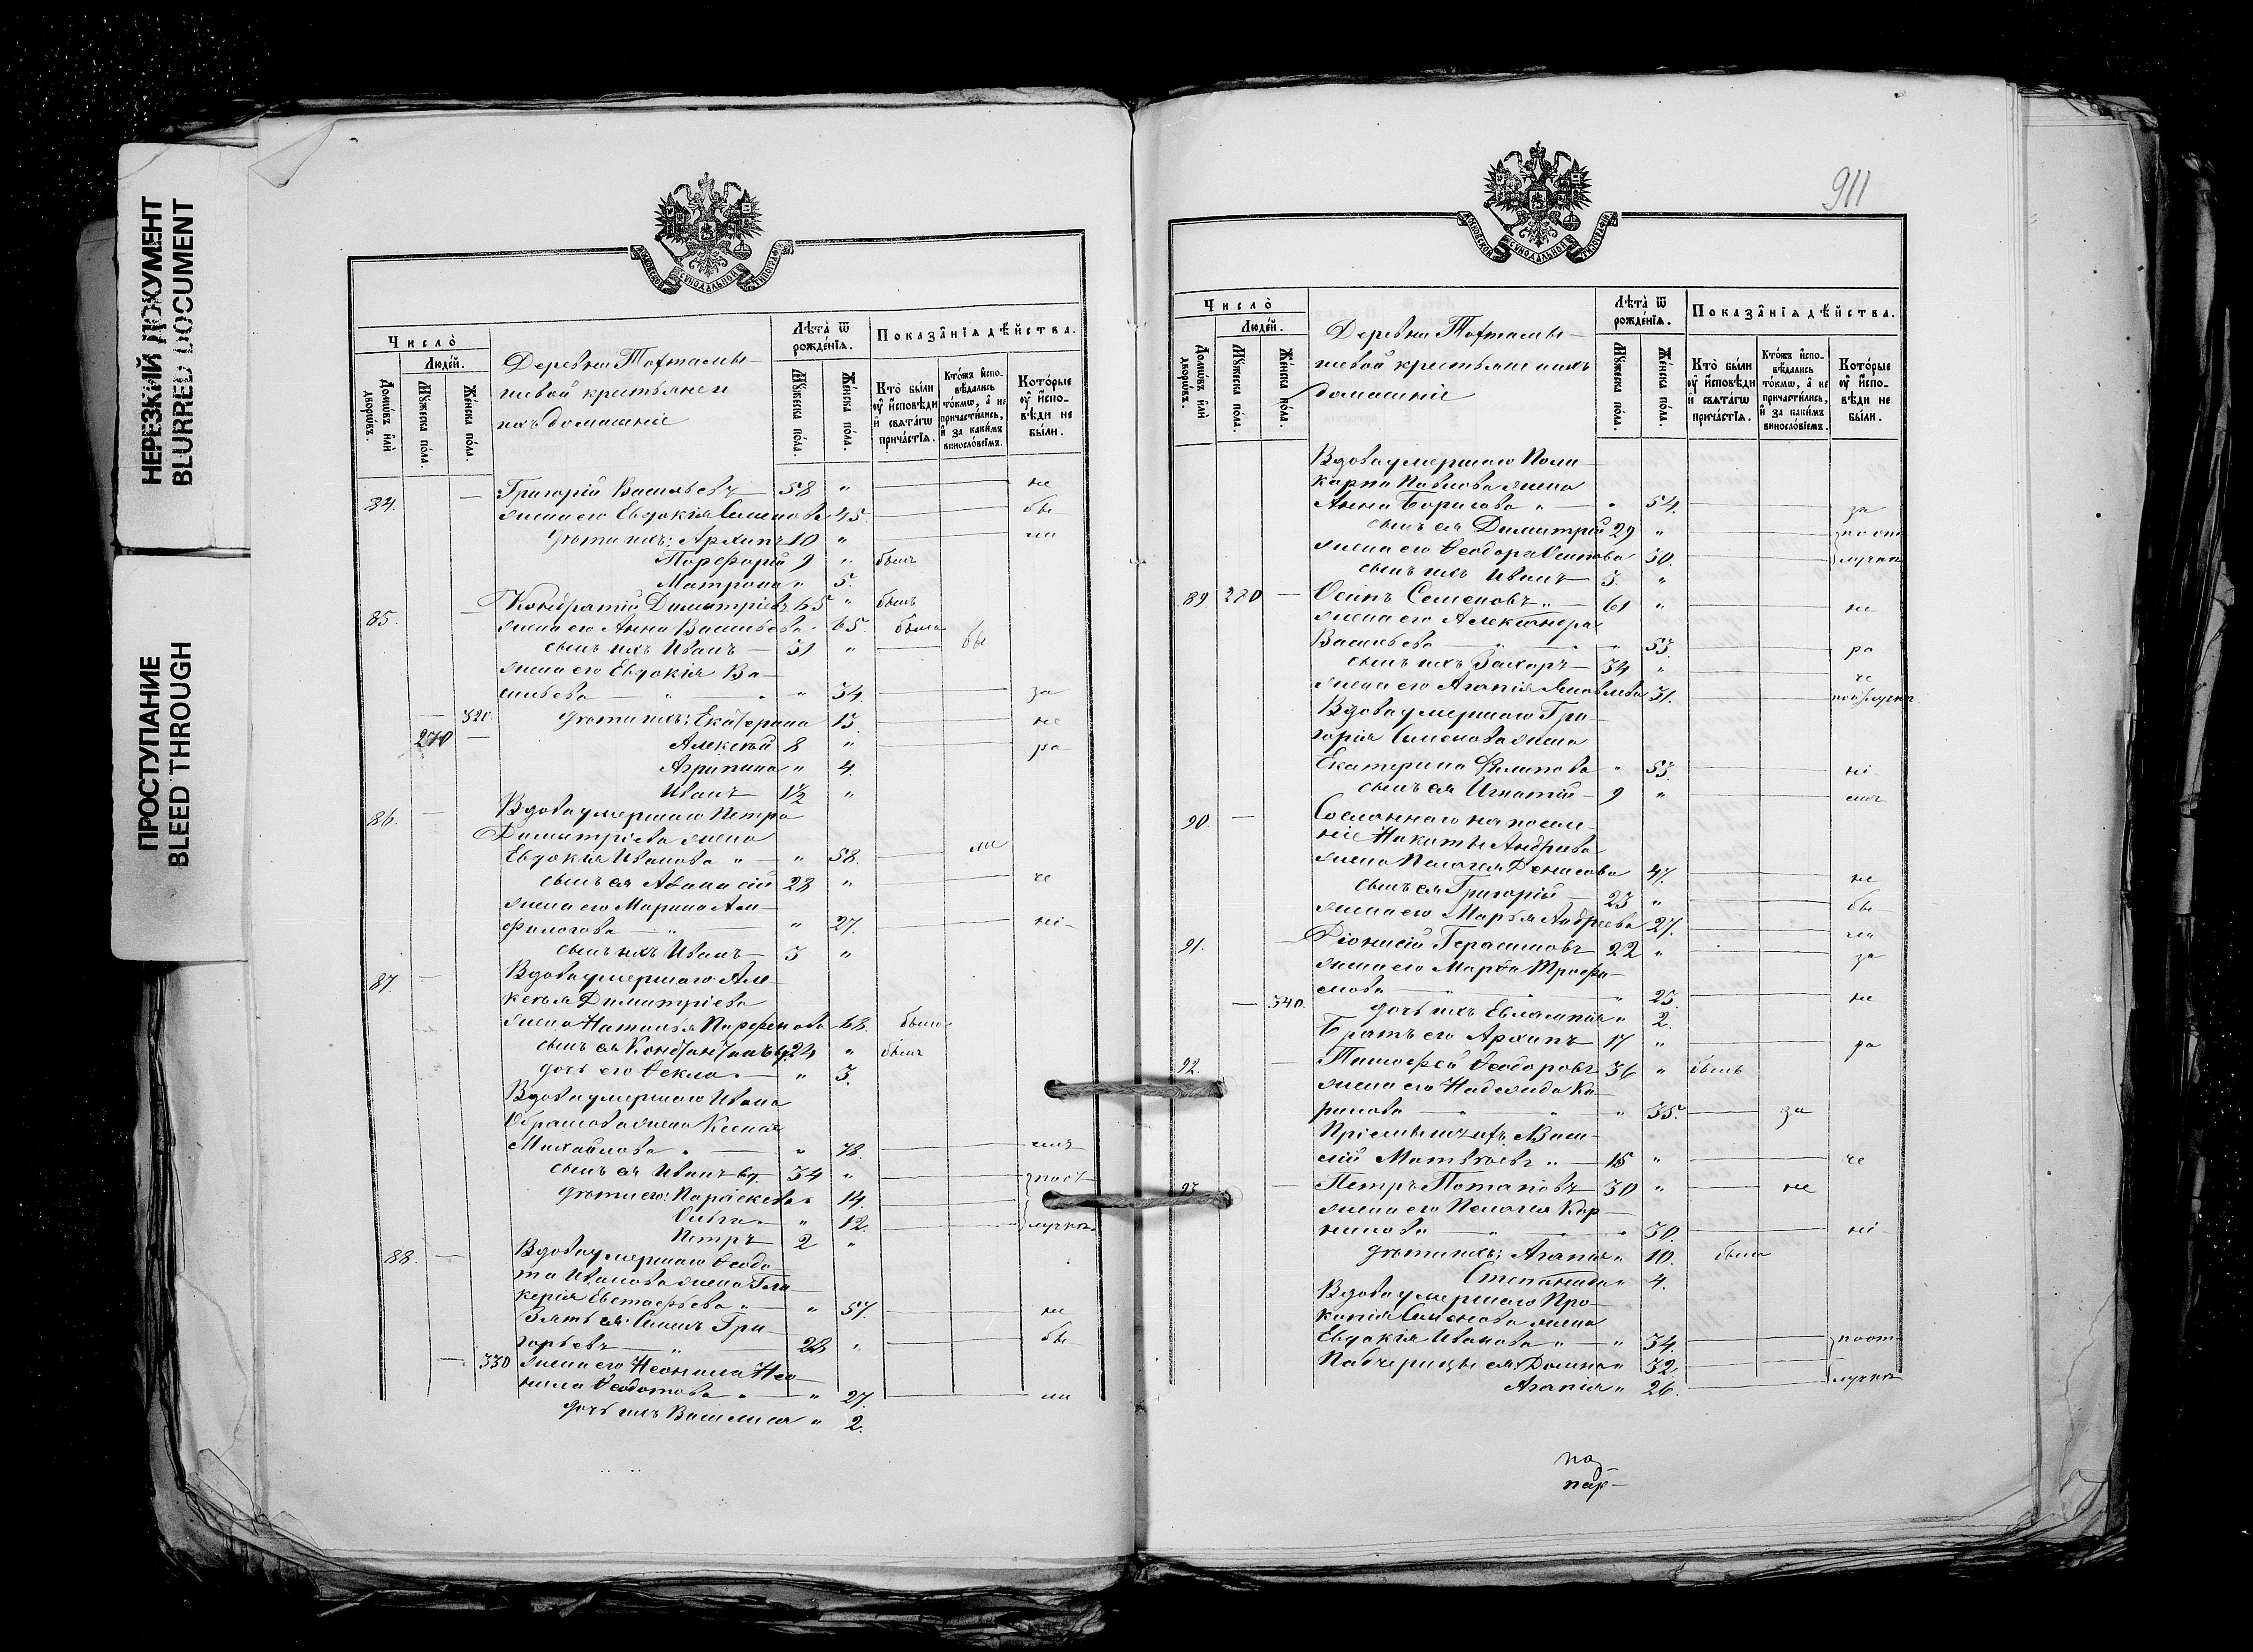 НЕРЕЗКИЙ ДОКУМЕНТ
BLURRED DOCUMENT
ПРОСТУПАНИЕ
BLEED THROUGH
МОСКОВСКОЙ СѴНОДАЛЬНОЙ ТИПОГРАФІИ
Число̀
Людéй.
Домѡ́въ и҆лѝ дворѡ́въ.
Мꙋ́жеска по́ла.
Же́нска по́ла.
Деревни Тохтамы-
шевой крестьяне и
ихъ домашніе
Лѣта̀ ѿ рожде́нїѧ.
Мꙋ́жеска по́ла.
Же́нска по́ла.
Показа̑нїѧ дѣ́йства.
Кто̀ бы́ли ᲂу҆ и҆сповѣ́ди и҆ свѧта́гѡ прича́стїѧ.
Кто́жъ и҆спо-
вѣ́дались то́кмѡ, а҆ не причасти́лись, и҆ за каки́мъ винослові́емъ.
Кото́рые ᲂу҆ и҆спо-
вѣ́ди не бы́ли.
84. Григорій Васильевъ 58 " не
жена его Евдокія Семенова 45. бы
дѣти ихъ: Архипъ 10 " ли
Порфирій 9 " былъ
Матрона " 5.
85. Кондратій Димитріевъ 65 " былъ
жена его Анна Васильева 65. была
сынъ ихъ Иванъ 31 " бы
жена его Евдокія Ва-
сильева " " 34. за
320. дѣти ихъ: Екатерина 13. не
270 Алексѣй 8 " ра
Агрипина " 4.
Иванъ 1½ "
86. Вдова умершаго Петра
Димитріева жена
Евдокія Иванова " " 58. ли
сынъ ея Аѳанасій 28 " че
жена его Марина Ам-
филогова " " 27. ні-
сынъ ихъ Иванъ 3 "
87. Вдова умершаго Але-
ксѣя Димитріева
жена Наталья Парфенова 68. была
сынъ ея Константинъ вд. 24 " былъ
дочь его Ѳекла " 3.
Вдова умершаго Ивана
жена Ксенія
Михайлова " " 78. емъ
сынъ ея Иванъ вд. 34 " поот
дѣти его: Параскева " 14.
Ольга " 12. лучкѣ
Петръ 2 "
88. Вдова умершаго Ѳедо-
та Иванова жена Гли-
керія Евстафьева " " 57. не
Зять ея Семенъ Гри-
горьевъ " 28 " бы
330 жена его Неонила Нео-
нила Ѳедотова " " 27. ли
дочь ихъ Василиса " 2.
911
МОСКОВСКОЙ СѴНОДАЛЬНОЙ ТИПОГРАФІИ
Число̀
Людéй.
Домѡ́въ и҆лѝ дворѡ́въ.
Мꙋ́жеска по́ла.
Же́нска по́ла.
Деревни Тохтамы-
шевой крестьяне ихъ
домашніе
Лѣта̀ ѿ рожде́нїѧ.
Мꙋ́жеска по́ла.
Же́нска по́ла.
Показа̑нїѧ дѣ́йства.
Кто̀ бы́ли ᲂу҆ и҆сповѣ́ди и҆ свѧта́гѡ прича́стїѧ.
Кто́жъ и҆спо-
вѣ́дались то́кмѡ, а҆ не причасти́лись, и҆ за каки́мъ винослові́емъ.
Кото́рые ᲂу҆ и҆спо-
вѣ́ди не бы́ли.
Вдова умершаго Поли-
карпа Павлова жена
Анна Борисова " " 54. за
сынъ ея Димитрій 29 " по от
жена его Ѳеодора Осипова 30. лучкѣ
сынъ ихъ Иванъ 3 "
89 280 Осипъ Семеновъ " 61 " не
жена его Александра
Васильева " 53. ра
сынъ ихъ Захаръ 34 " че
жена его Агапія Яковлева 31.
Вдова умершаго Гри-
горія Семенова жена
Екатерина Филипова " 53. ні-
сынъ ея Игнатій 9 " емъ
90 Сосланнаго на поселе-
ніе Никиты Андреева
жена Пелагея Денисова 47. не
сынъ ея Григорій 23 " бы
жена его Марья Андреева 27. ли
91. Діонисій Герасимовъ 22 " за
жена его Марѳа Трофи-
мова " " 25. не
340. дочь ихъ Евлампія " 2.
Братъ его Архипъ 17 " ра
92. Тимофей Ѳеодоровъ 36 " былъ
жена его Надежда Ка-
рпова " " " 35. за
Пріемышъ ихъ Васи-
лій Матвѣевъ " 15 " че
93 Петръ Потаповъ 30 " не
жена его Пелагея Кор-
нилова " " 30. ні-
дѣти ихъ: Агапія " 10. была
Степанида " 4.
Вдова умершаго Про-
копія Семенова жена
Евдокія Иванова " " 54. по от
Падчерицы ея: Домна " 32.
Агапія " 26. лучкѣ